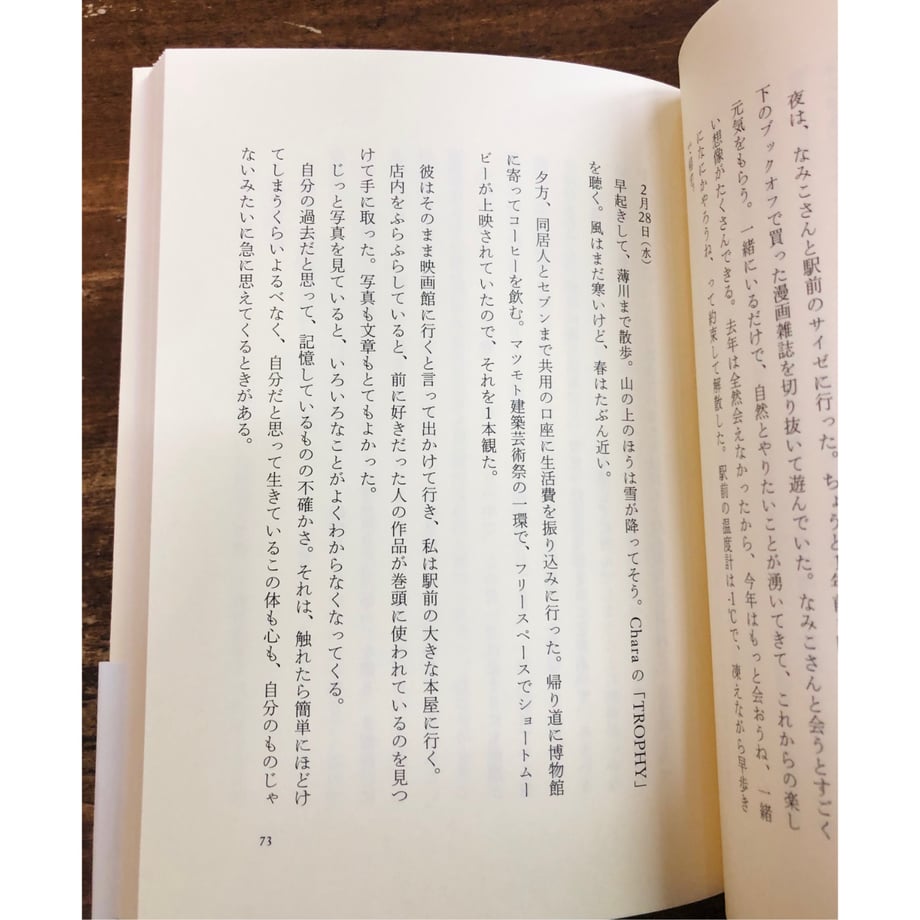 夜は、なみこさんと駅前のサイゼに行った。ちょうど1年前
下のブックオフで買った漫画雑誌を切り抜いて遊んでいた。なみこさんと会うとすごく
元気をもらう。一緒にいるだけで、自然とやりたいことが湧いてきて、これからの楽し
い想像がたくさんできる。去年は全然会えなかったから、今年はもっと会おうね、一緒
になにかやろうね、って約束して解散した。駅前の温度計は-1℃で、凍えながら早歩き
で帰宅。
2月28日（水）
早起きして、薄川まで散歩。山の上のほうは雪が降ってそう。Charaの「TROPHY」
を聴く。風はまだ寒いけど、春はたぶん近い。
夕方、同居人とセブンまで共用の口座に生活費を振り込みに行った。帰り道に博物館
に寄ってコーヒーを飲む。マツモト建築芸術祭の一環で、フリースペースでショートムー
ビーが上映されていたので、それを1本観た。
彼はそのまま映画館に行くと言って出かけて行き、私は駅前の大きな本屋に行く。
店内をふらふらしていると、前に好きだった人の作品が巻頭に使われているのを見つ
けて手に取った。写真も文章もとてもよかった。
じっと写真を見ていると、いろいろなことがよくわからなくなってくる。
自分の過去だと思って、記憶しているものの不確かさ。それは、触れたら簡単にほどけ
てしまうくらいよるべなく、自分だと思って生きているこの体も心も、自分のものじゃ
ないみたいに急に思えてくるときがある。
73